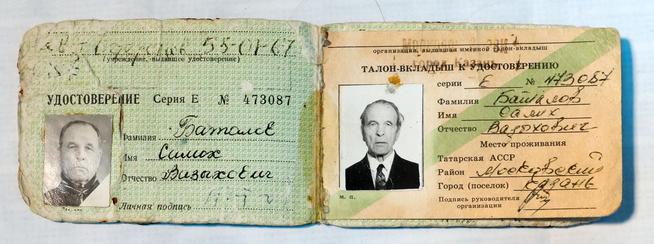 55-01-67
(учреждение, выдавшее удостоверение)
УДОСТОВЕРЕНИЕ Серия Е № 473087
Фамилия Баталов
Имя Салих
Отчество Вализхович
Личная подпись
организации, выдавшая именной талон-вкладыш
ТАЛОН-ВКЛАДЫШ К УДОСТОВЕРЕНИЮ
серии Е № 473087
Фамилия Баталов
Имя Салих
Отчество
Место проживания
Татарская АССР
Район Московский
Город (поселок) Казань
Подпись руководителя
организации
М. П.